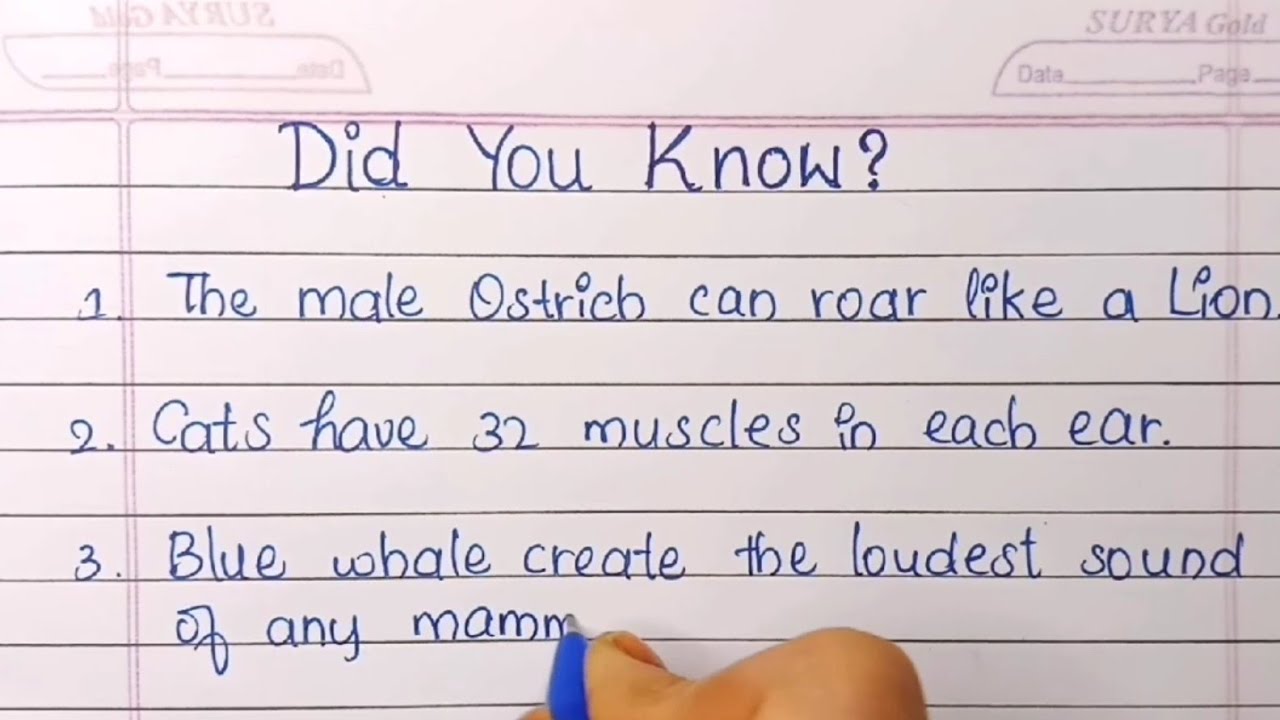 SURYA Gold
Date Page
Did You Know?
1. The male Ostrich can roar like a Lion.
2. Cats have 32 muscles in each ear.
3. Blue whale create the loudest sound
of any mamm